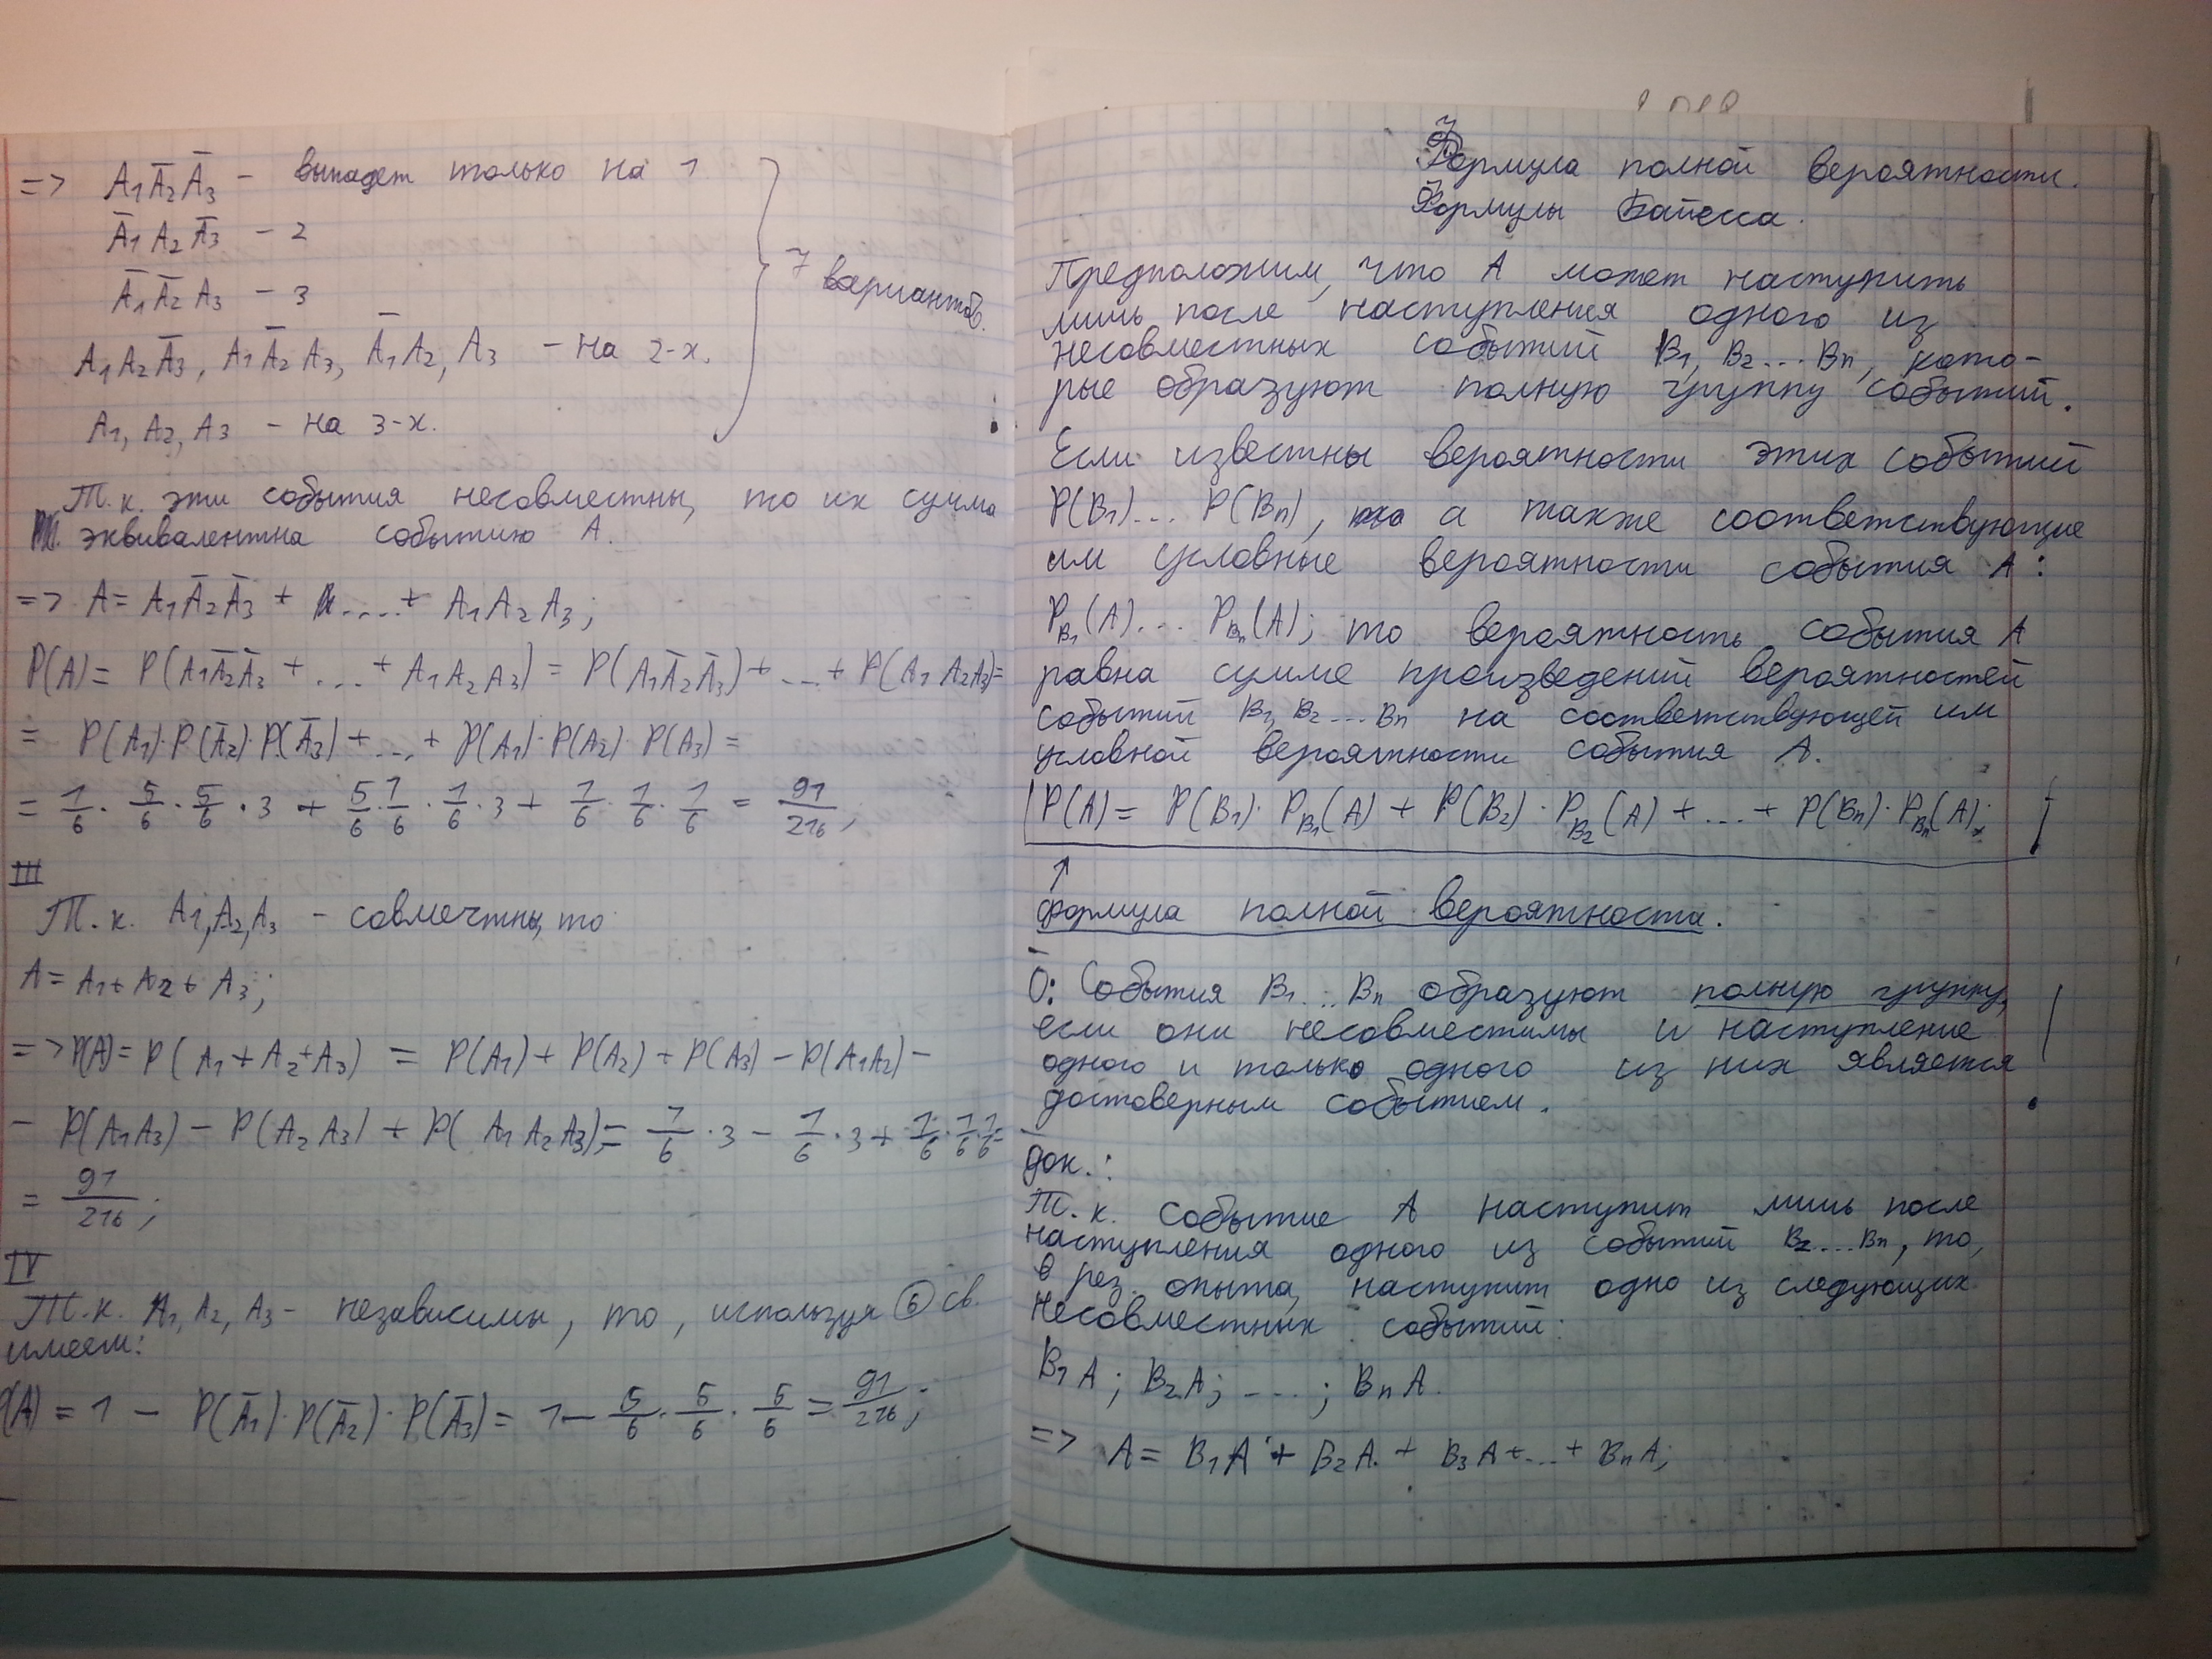 => A₁A̅₂A̅₃ – выпадет только на 1
A̅₁A₂A̅₃ – 2
A̅₁A̅₂A₃ – 3
7 вариантов.
A₁A₂A̅₃, A₁A̅₂A₃, A̅₁A₂, A₃ – на 2-х.
A₁, A₂, A₃ – на 3-х.
Т.к. эти события несовместны, то их сумма
эквивалентна событию A.
=> A = A₁A̅₂A̅₃ + .... + A₁A₂A₃;
P(A) = P(A₁A̅₂A̅₃ + ... + A₁A₂A₃) = P(A₁A̅₂A̅₃) + ... + P(A₁A₂A₃) =
= P(A₁)·P(A̅₂)·P(A̅₃) + ... + P(A₁)·P(A₂)·P(A₃) =
= 1/6 · 5/6 · 5/6 · 3 + 5/6 · 1/6 · 1/6 · 3 + 1/6 · 1/6 · 1/6 = 91/216;
III
Т.к. A₁, A₂, A₃ – совмечтны, то
A = A₁ + A₂ + A₃;
=> P(A) = P(A₁ + A₂ + A₃) = P(A₁) + P(A₂) + P(A₃) – P(A₁A₂) –
– P(A₁A₃) – P(A₂A₃) + P(A₁A₂A₃) = 1/6 · 3 – 1/6 · 3 + 1/6 · 1/6 · 1/6 =
= 91/216;
IV
Т.к. A₁, A₂, A₃ – независимы, то, используя ⑥ св.
имеем:
P(A) = 1 – P(A̅₁)·P(A̅₂)·P(A̅₃) = 1 – 5/6 · 5/6 · 5/6 = 91/216;
Формула полной вероятности.
Формулы Байесса.
Предположим, что A может наступить
лишь после наступления одного из
несовместных событий B₁, B₂ ... Bn, кото-
рые образуют полную группу событий.
Если известны вероятности этих событий
P(B₁) ... P(Bn), а также соответствующие
им условные вероятности события A:
P_B₁(A) ... P_Bn(A); то вероятность события A
равна сумме произведений вероятностей
событий B₁, B₂ ... Bn на соответствующей им
условной вероятности события A.
P(A) = P(B₁)·P_B₁(A) + P(B₂)·P_B₂(A) + ... + P(Bn)·P_Bn(A);
↑
формула полной вероятности.
О: События B₁ ... Bn образуют полную группу,
если они несовместимы и наступление
одного и только одного из них является
достоверным событием.
док.:
Т.к. событие A наступит лишь после
наступления одного из событий B₂ .... Bn, то,
в рез. опыта, наступит одно из следующих
несовместных событий:
B₁A; B₂A; ....; BnA.
=> A = B₁A + B₂A + B₃A + ... + BnA;